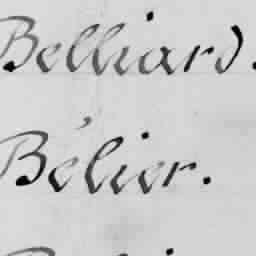 Belliard.
Bélier.